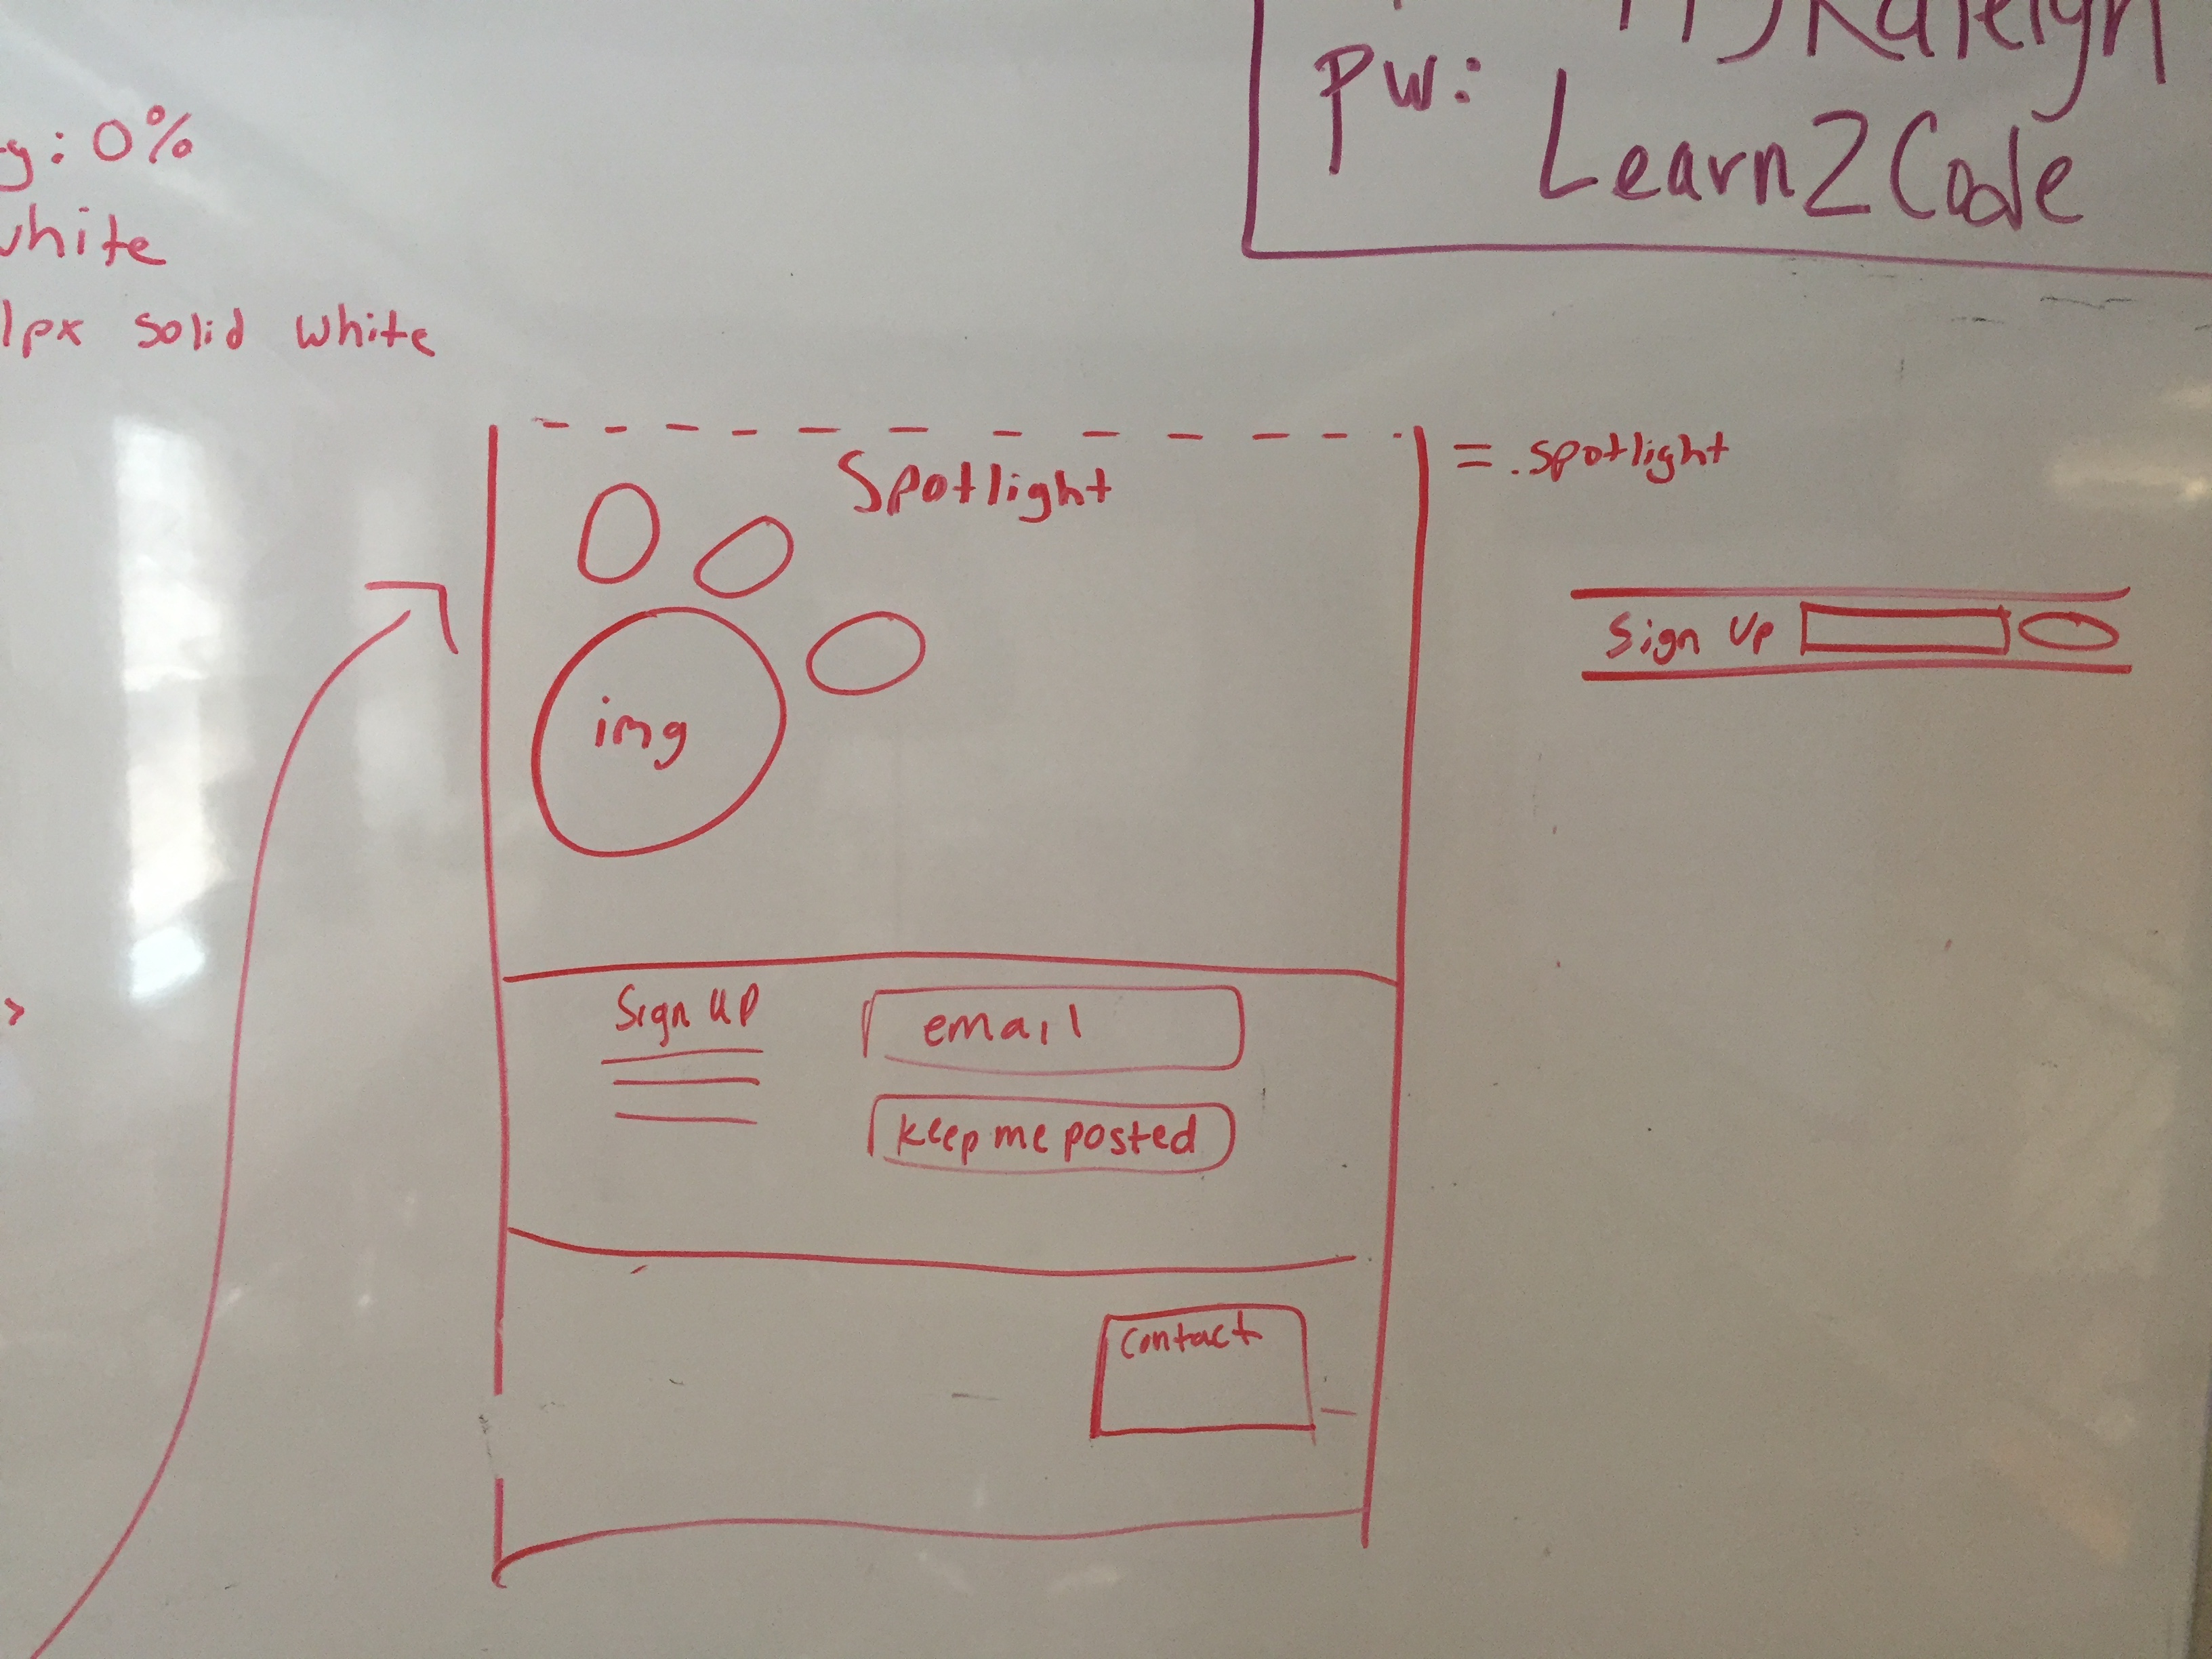 Raleigh
pw:
Learn2Code
g: 0%
white
1px solid white
Spotlight
= .spotlight
Sign Up
img
Sign UP
email
keep me posted
Contact
>